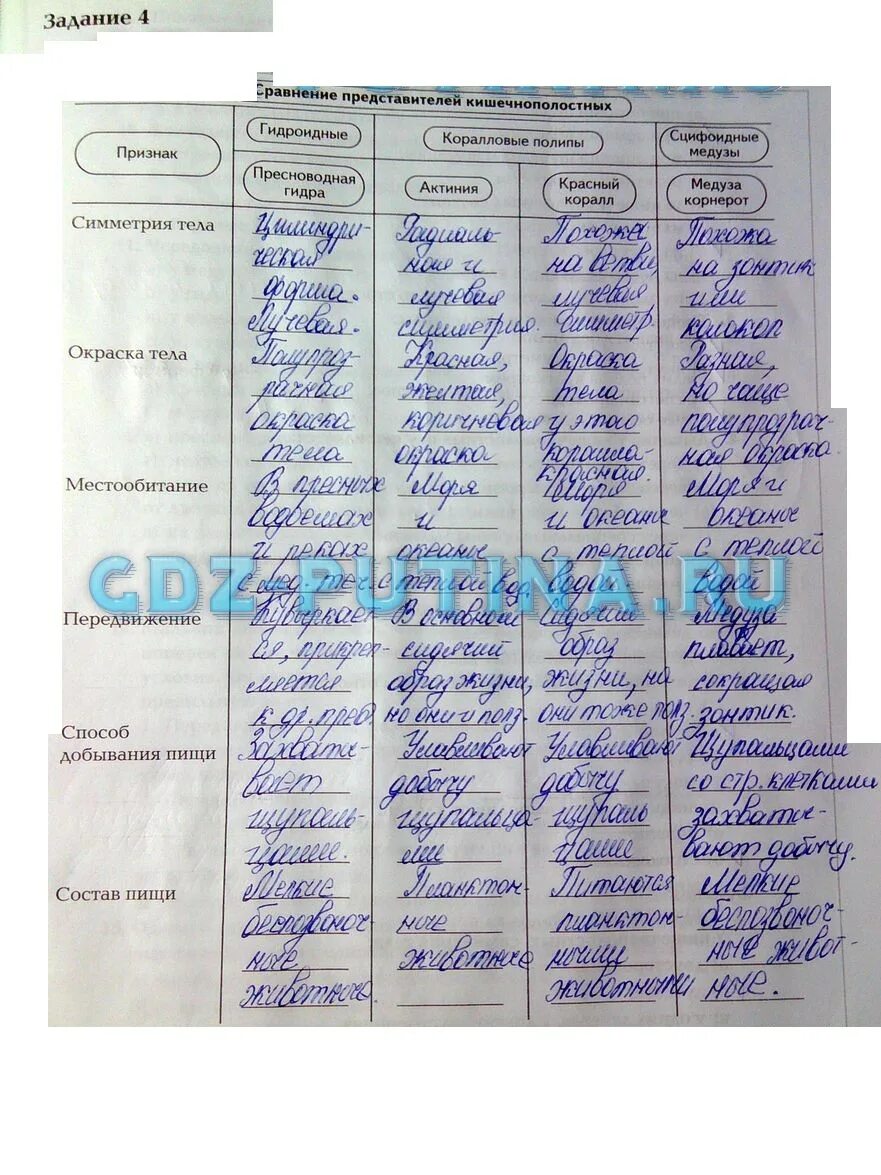 Задание 4
Сравнение представителей кишечнополостных
Признак
Гидроидные
Коралловые полипы
Сцифоидные
медузы
Пресноводная
гидра
Актиния
Красный
коралл
Медуза
корнерот
Симметрия тела
Цилиндри-
ческая
форма.
Лучевая.
Радиаль-
ная и
лучевая
симметрия.
Похожа
на ветви,
лучевая
симметр.
Похожа
на зонтик
или
колокол
Окраска тела
Полупроз-
рачная
окраска
тела
Красная,
желтая,
коричневая
окраска
Окраска
тела
у этого
коралла-
красная.
Разная,
но чаще
полупрозрач-
ная окраска.
Местообитание
В пресных
водоемах
и реках
с мед. теч.
Моря
и
океаны
с теплой вод.
Моря
и океаны
с теплой
водой
Моря и
океаны
с теплой
водой
Передвижение
Кувыркает-
ся, прикреп-
ляется
к др. пред.
В основном
сидячий
образ жизни,
но они и полз.
Сидячий
образ
жизни, но
они тоже полз.
Медуза
плавает,
сокращая
зонтик.
Способ
добывания пищи
Захваты-
вает
щупаль-
цами.
Улавливают
добычу
щупальца-
ми
Улавливают
добычу
щупаль
цами
Щупальцами
со стр. клетками
захваты-
вают добычу.
Состав пищи
Мелкие
беспозвоноч-
ные
животные.
Планктон-
ные
животные
Питаются
планктон-
ными
животными
Мелкие
беспозвоноч-
ные живот-
ные.
GDZ-PUTINA.RU